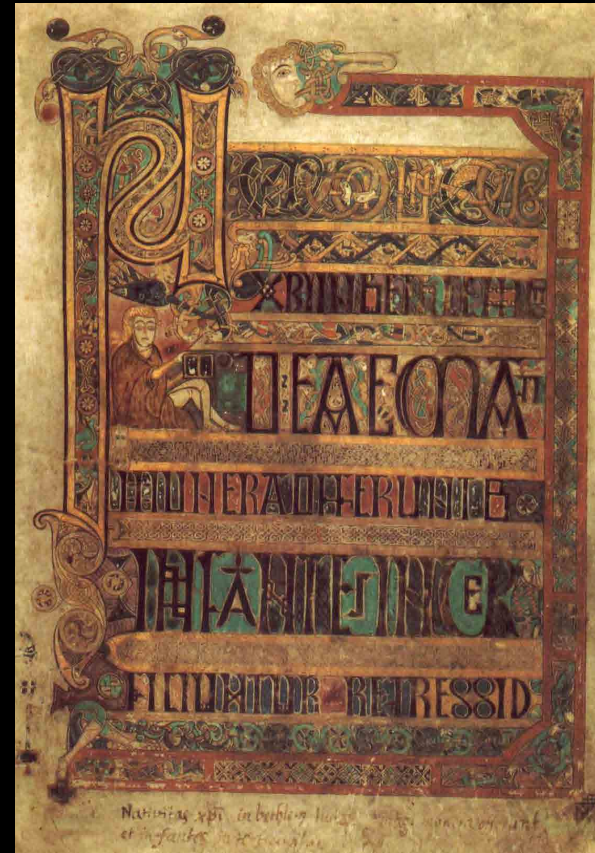 NATIUITAS
XRI IN BETHLEM
IUDEAE MA
GI MUNERA OFFERUNT
INFANTES INTER
FICIUNTUR REGRESSIO
Nativitas xpi in bethlem
et infantes